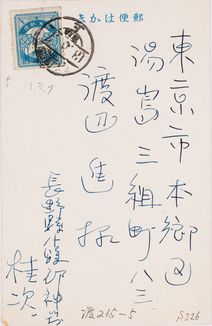 郵便はがき
東京市本郷区
湯島三組町八三
渡辺進様
長野縣
桂次
13.3.9
渡215-5
S226